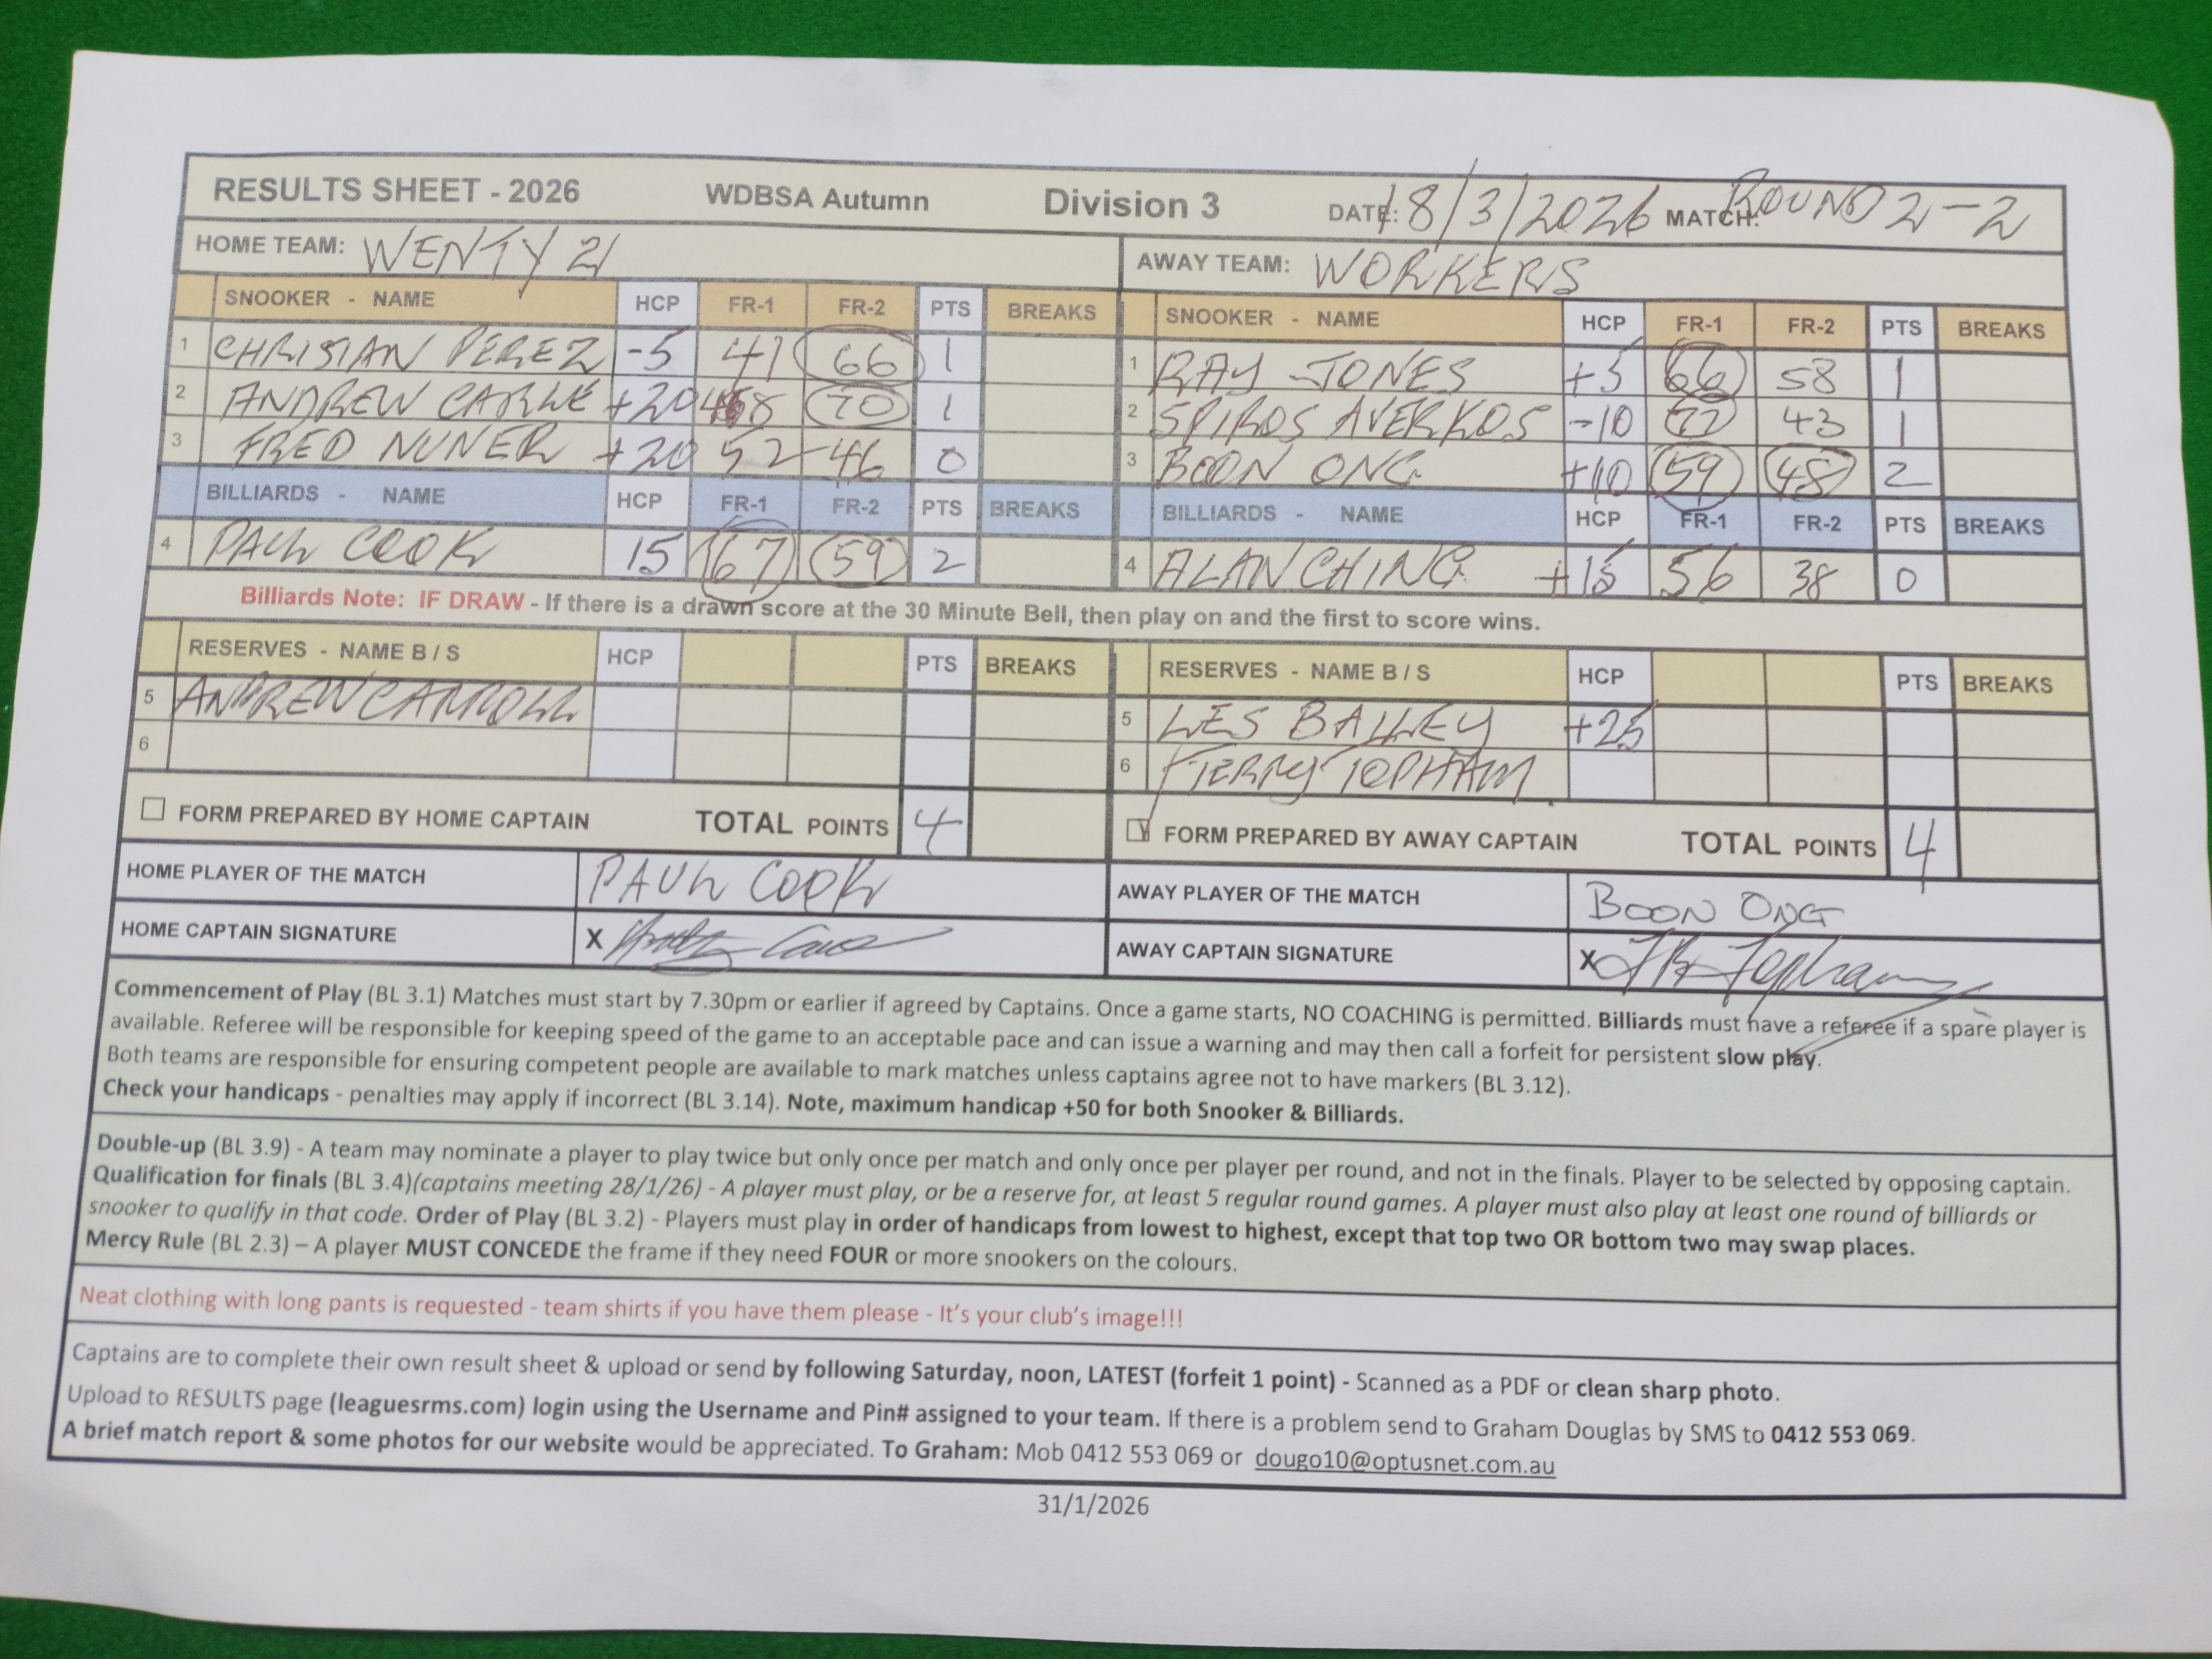 RESULTS SHEET - 2026 WDBSA Autumn Division 3 DATE: 18/3/2026 MATCH: ROUND 2-2
HOME TEAM: WENTY 21 AWAY TEAM: WORKERS
SNOOKER - NAME HCP FR-1 FR-2 PTS BREAKS SNOOKER - NAME HCP FR-1 FR-2 PTS BREAKS
1 CHRISTIAN PEREZ -5 41 66 1 1 RAY JONES +5 66 58 1
2 ANDREW +20 70 1 2 SPIROS AVERKOS -10 77 43 1
3 FRED NUNER +20 52 46 0 3 BOON ONG +10 59 48 2
BILLIARDS - NAME HCP FR-1 FR-2 PTS BREAKS BILLIARDS - NAME HCP FR-1 FR-2 PTS BREAKS
4 PAUL COOK 15 67 59 2 4 ALAN CHING +15 56 38 0
Billiards Note: IF DRAW - If there is a drawn score at the 30 Minute Bell, then play on and the first to score wins.
RESERVES - NAME B / S HCP PTS BREAKS RESERVES - NAME B / S HCP PTS BREAKS
5 ANDREW CARROLL 5 LES BAILEY +25
6 6 TERRY TOPHAM
FORM PREPARED BY HOME CAPTAIN TOTAL POINTS 4 FORM PREPARED BY AWAY CAPTAIN TOTAL POINTS 4
HOME PLAYER OF THE MATCH PAUL COOK AWAY PLAYER OF THE MATCH BOON ONG
HOME CAPTAIN SIGNATURE X AWAY CAPTAIN SIGNATURE X Topham
Commencement of Play (BL 3.1) Matches must start by 7.30pm or earlier if agreed by Captains. Once a game starts, NO COACHING is permitted. Billiards must have a referee if a spare player is
available. Referee will be responsible for keeping speed of the game to an acceptable pace and can issue a warning and may then call a forfeit for persistent slow play.
Both teams are responsible for ensuring competent people are available to mark matches unless captains agree not to have markers (BL 3.12).
Check your handicaps - penalties may apply if incorrect (BL 3.14). Note, maximum handicap +50 for both Snooker & Billiards.
Double-up (BL 3.9) - A team may nominate a player to play twice but only once per match and only once per player per round, and not in the finals. Player to be selected by opposing captain.
Qualification for finals (BL 3.4)(captains meeting 28/1/26) - A player must play, or be a reserve for, at least 5 regular round games. A player must also play at least one round of billiards or
snooker to qualify in that code. Order of Play (BL 3.2) - Players must play in order of handicaps from lowest to highest, except that top two OR bottom two may swap places.
Mercy Rule (BL 2.3) – A player MUST CONCEDE the frame if they need FOUR or more snookers on the colours.
Neat clothing with long pants is requested - team shirts if you have them please - It's your club's image!!!
Captains are to complete their own result sheet & upload or send by following Saturday, noon, LATEST (forfeit 1 point) - Scanned as a PDF or clean sharp photo.
Upload to RESULTS page (leaguesrms.com) login using the Username and Pin# assigned to your team. If there is a problem send to Graham Douglas by SMS to 0412 553 069.
A brief match report & some photos for our website would be appreciated. To Graham: Mob 0412 553 069 or dougo10@optusnet.com.au
31/1/2026